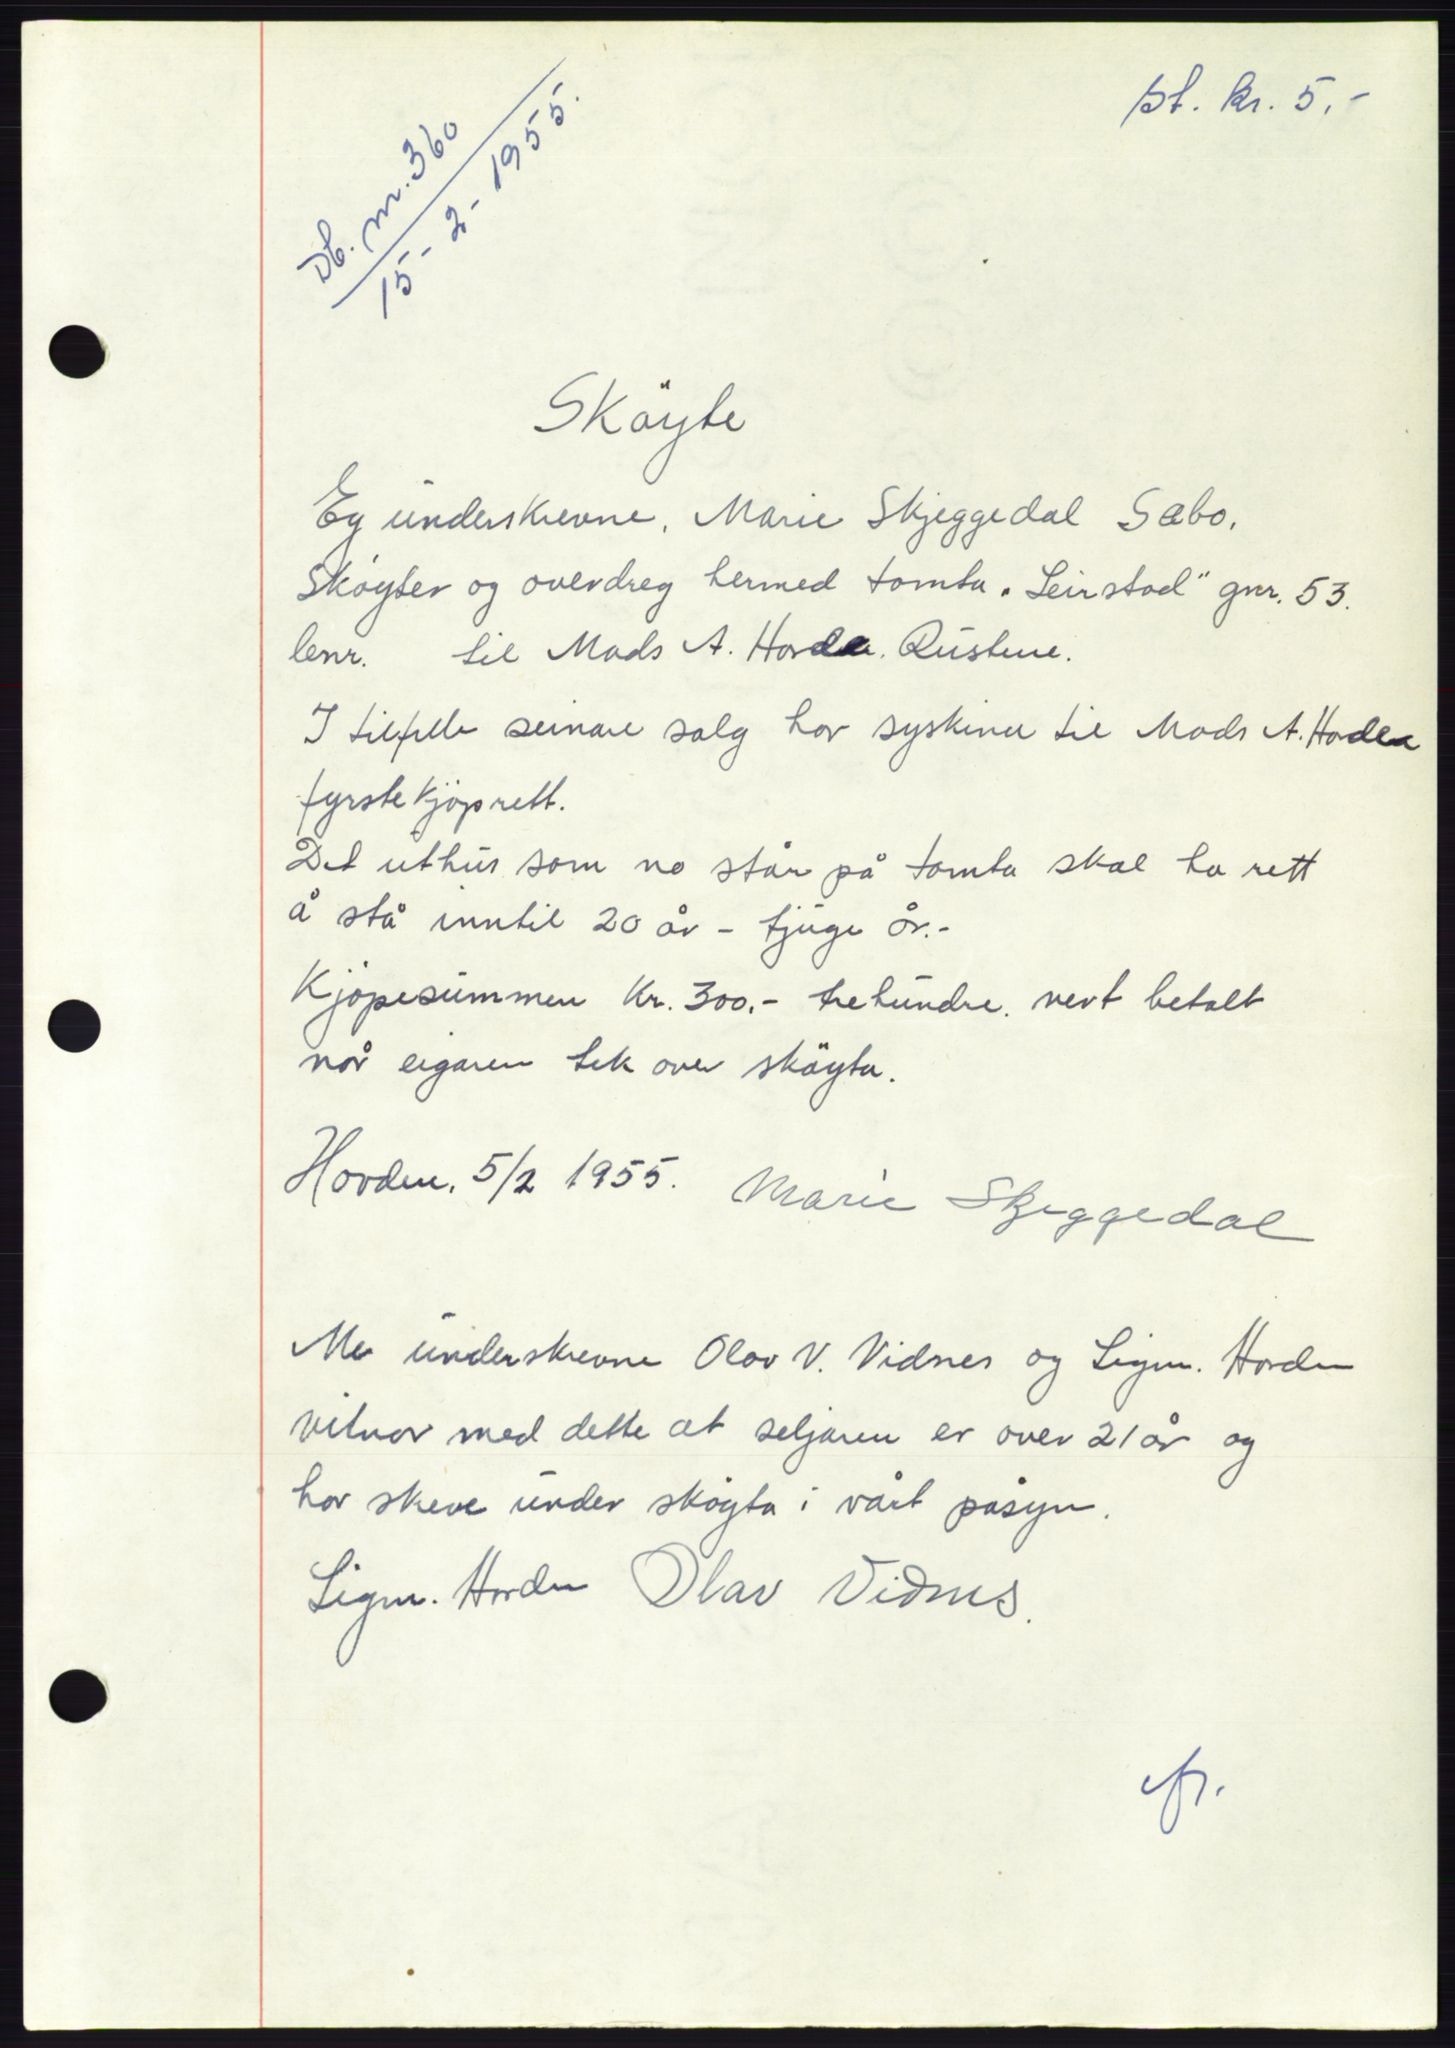 st. kr. 5.-
Db. nr. 360
15-2-1955.
Sköyte
Eg underskrevne, Marie Skjeggedal Sæbo,
Sköyter og overdreg hermed tomta "Leirstad" gnr. 53.
bnr. til Mads A. Hovden. Rustene.
I tilfelle seinare salg har syskina til Mads A. Hovden
fyrste kjöprett.
Det uthus som no står på tomta skal ha rett
å stå inntil 20 år - tjuge år.-
Kjöpesummen Kr. 300.- trehundre. vert betalt
når eigaren tek over sköyta.
Hovden, 5/2 1955. Marie Skjeggedal
Me underskrevne Olav V. Vidnes og Sigm. Hovden
vitnar med dette at seljaren er over 21 år og
har skreve under sköyta i vårt påsyn.
Sigm. Hovden Olav Vidnes.